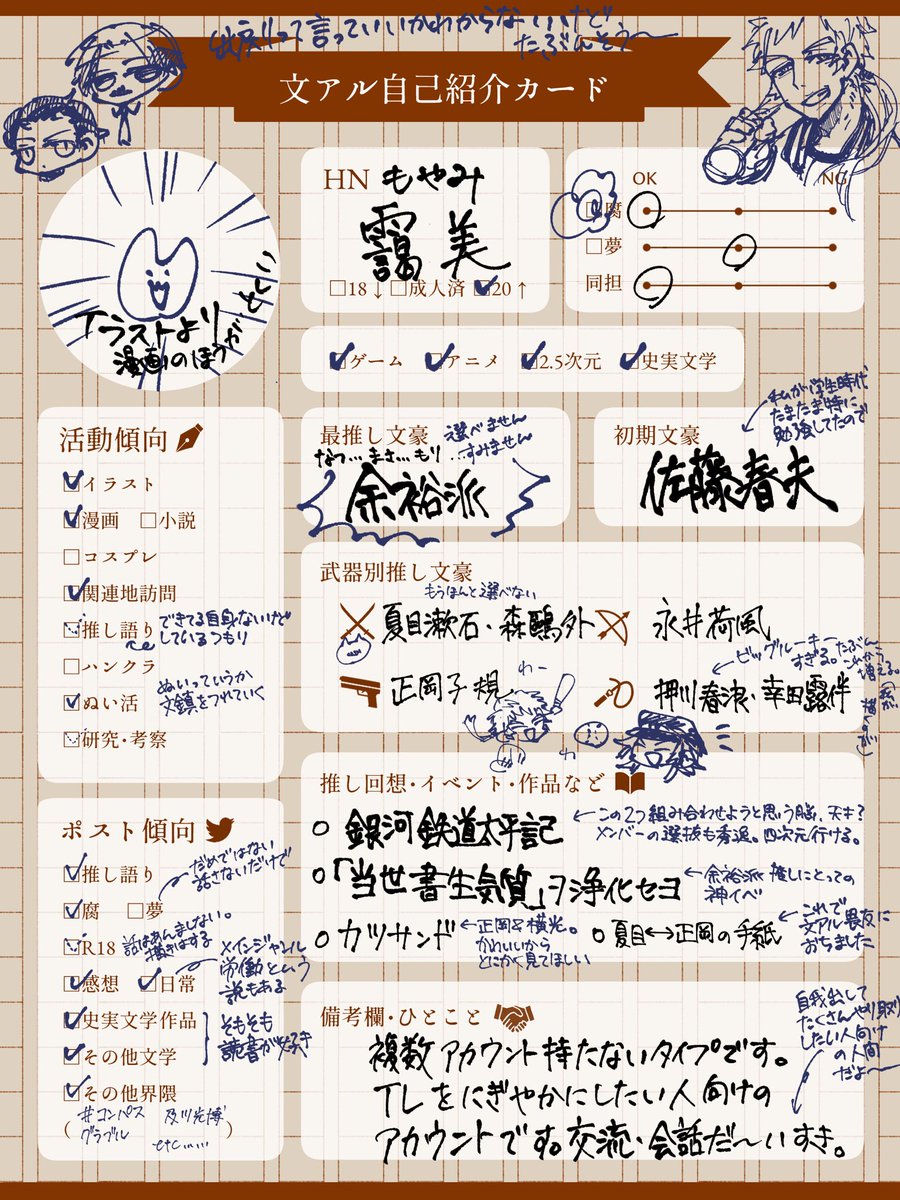 出戻りって言っていいかわからないけど
たぶんそう〜
文アル自己紹介カード
イラストより
漫画のほう
HN もやみ
靄美
□18↓ □成人済 ☑20↑
OK NG
□腐
□夢
同担
☑ゲーム ☑アニメ ☑2.5次元 ☑史実文学
活動傾向
☑イラスト
☑漫画 □小説
□コスプレ
☑関連地訪問
□推し語り
できてる自身ないけど
しているつもり
□ハンクラ
☑ぬい活
ぬいっていうか
文鎮をつれていく
□研究・考察
最推し文豪
選べません
すみません
なつ…まさ…もり…
余裕派
初期文豪
私が学生時代
たまたま特に
勉強してたので
佐藤春夫
武器別推し文豪
もうほんと選べない
夏目漱石・森鷗外
永井荷風
正岡子規
わー
押川春浪・幸田露伴
ビッグルーキー
すぎる。たぶん
これから
増える。
推し回想・イベント・作品など
銀河鉄道太平記
←この2つ組み合わせようと思う脳、天才?
メンバーの選抜も秀逸。四次元行ける。
「当世書生気質」ヲ浄化セヨ
←余裕派推しにとっての
神イベ
カツサンド
←正岡&横光。
かわいいから
とにかく見てほしい
夏目↔正岡の手紙
←これで
文アル畏友に
おちました
ポスト傾向
☑推し語り
☑腐 □夢
だめではない
話さないだけで
□R18
話はあんましない。
描きはする
☑感想 ☑日常
メインジャンル
労働という
説もある
☑史実文学作品
☑その他文学
そもそも
読書が好き
☑その他界隈
(#コンパス 及川光博
グラブル etc……)
備考欄・ひとこと
複数アカウント持たないタイプです。
TLをにぎやかにしたい人向けの
アカウントです。交流・会話だ〜いすき。
自我出して
たくさんやり取り
したい人向け
の人間
だよ〜